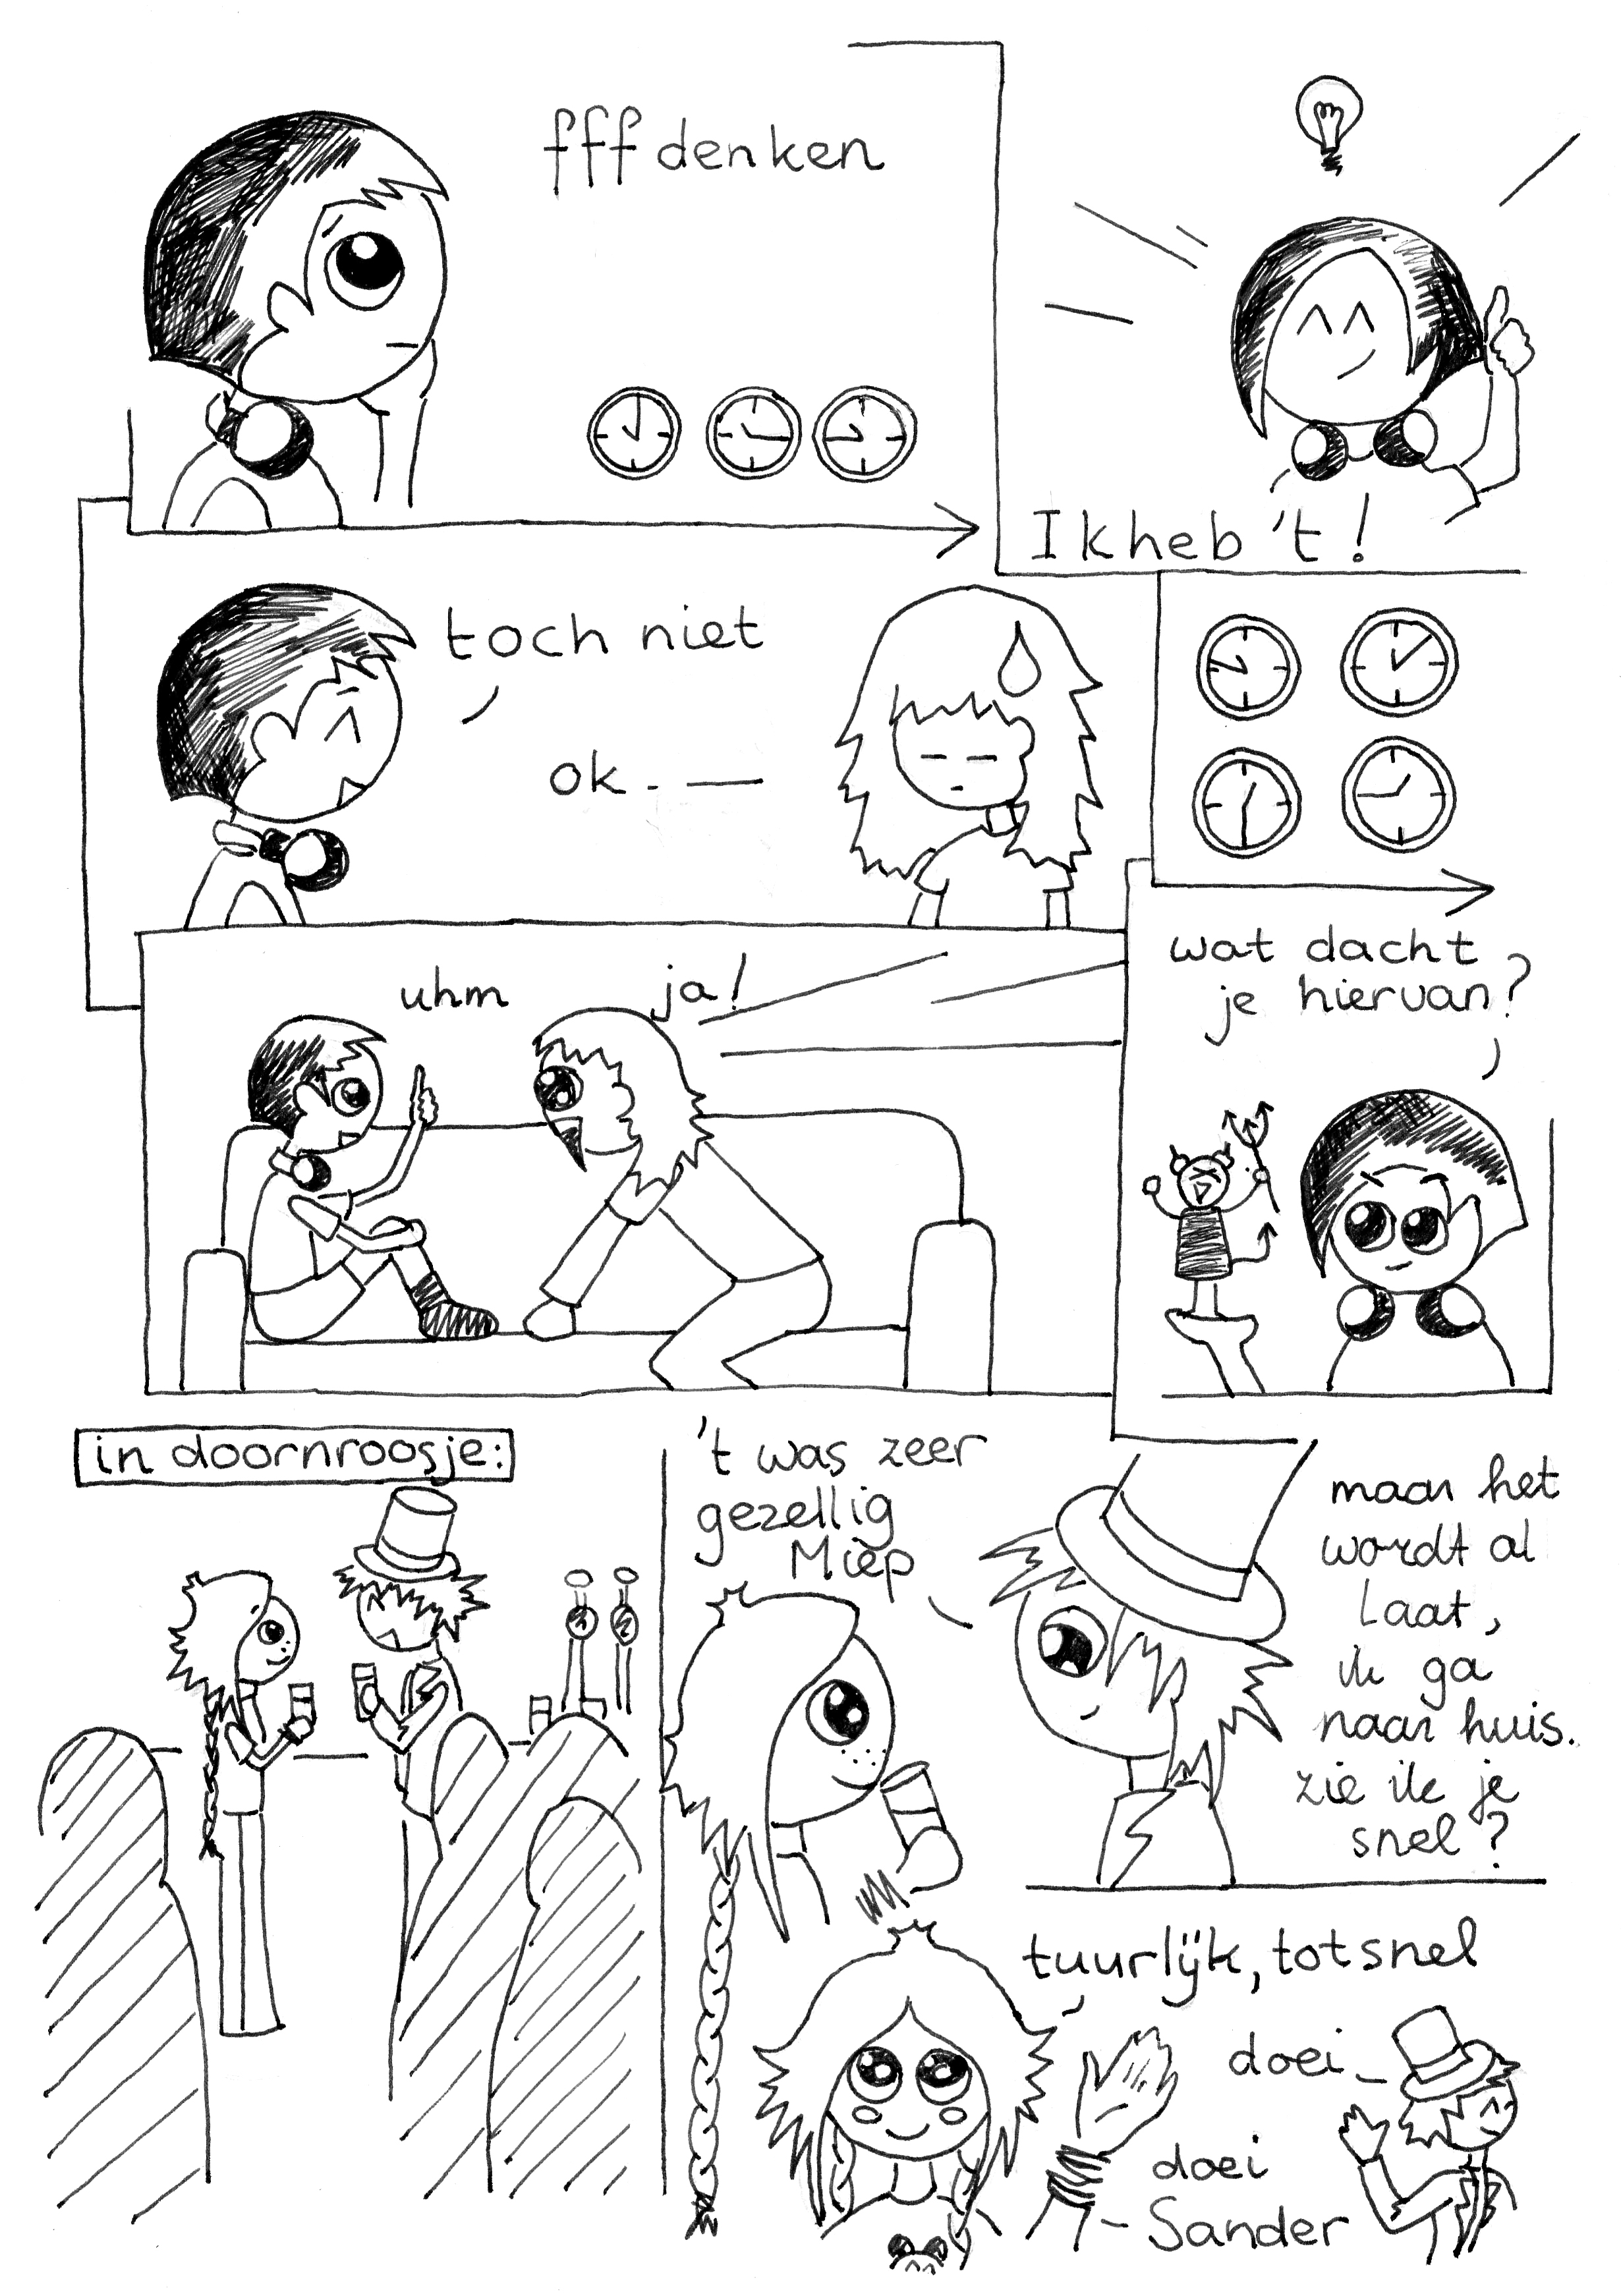 fff denken
Ik heb 't!
toch niet
ok.
uhm
ja!
wat dacht
je hiervan?
in doornroosje:
't was zeer
gezellig
Miep
maar het
wordt al
laat,
ik ga
naar huis.
zie ik je
snel?
tuurlijk, tot snel
doei
doei
Sander